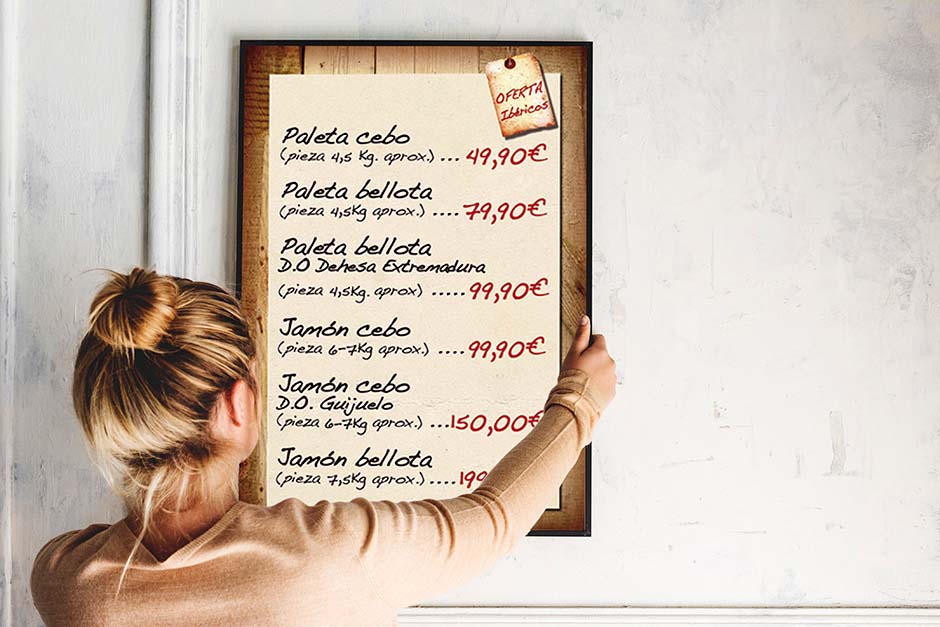 OFERTA
Ibéricos
Paleta cebo
(pieza 4,5 Kg. aprox.) ... 49,90€
Paleta bellota
(pieza 4,5Kg aprox.) .... 79,90€
Paleta bellota
D.O Dehesa Extremadura
(pieza 4,5Kg. aprox) ..... 99,90€
Jamón cebo
(pieza 6-7Kg aprox.) .... 99,90€
Jamón cebo
D.O. Guijuelo
(pieza 6-7Kg aprox.) ...150,00€
Jamón bellota
(pieza 7,5Kg aprox.) ....